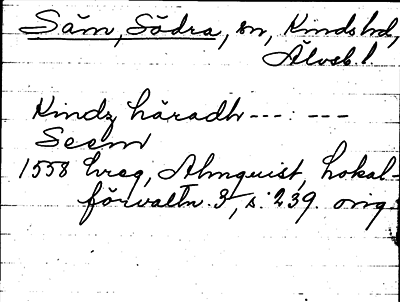 Säm, Södra, sn, Kinds hd,
Älvsb. l.
Kindz häradh ---:---
Seem
1558 hreg, Almquist, Lokal-
förvaltn. 3, s. 239. orig.